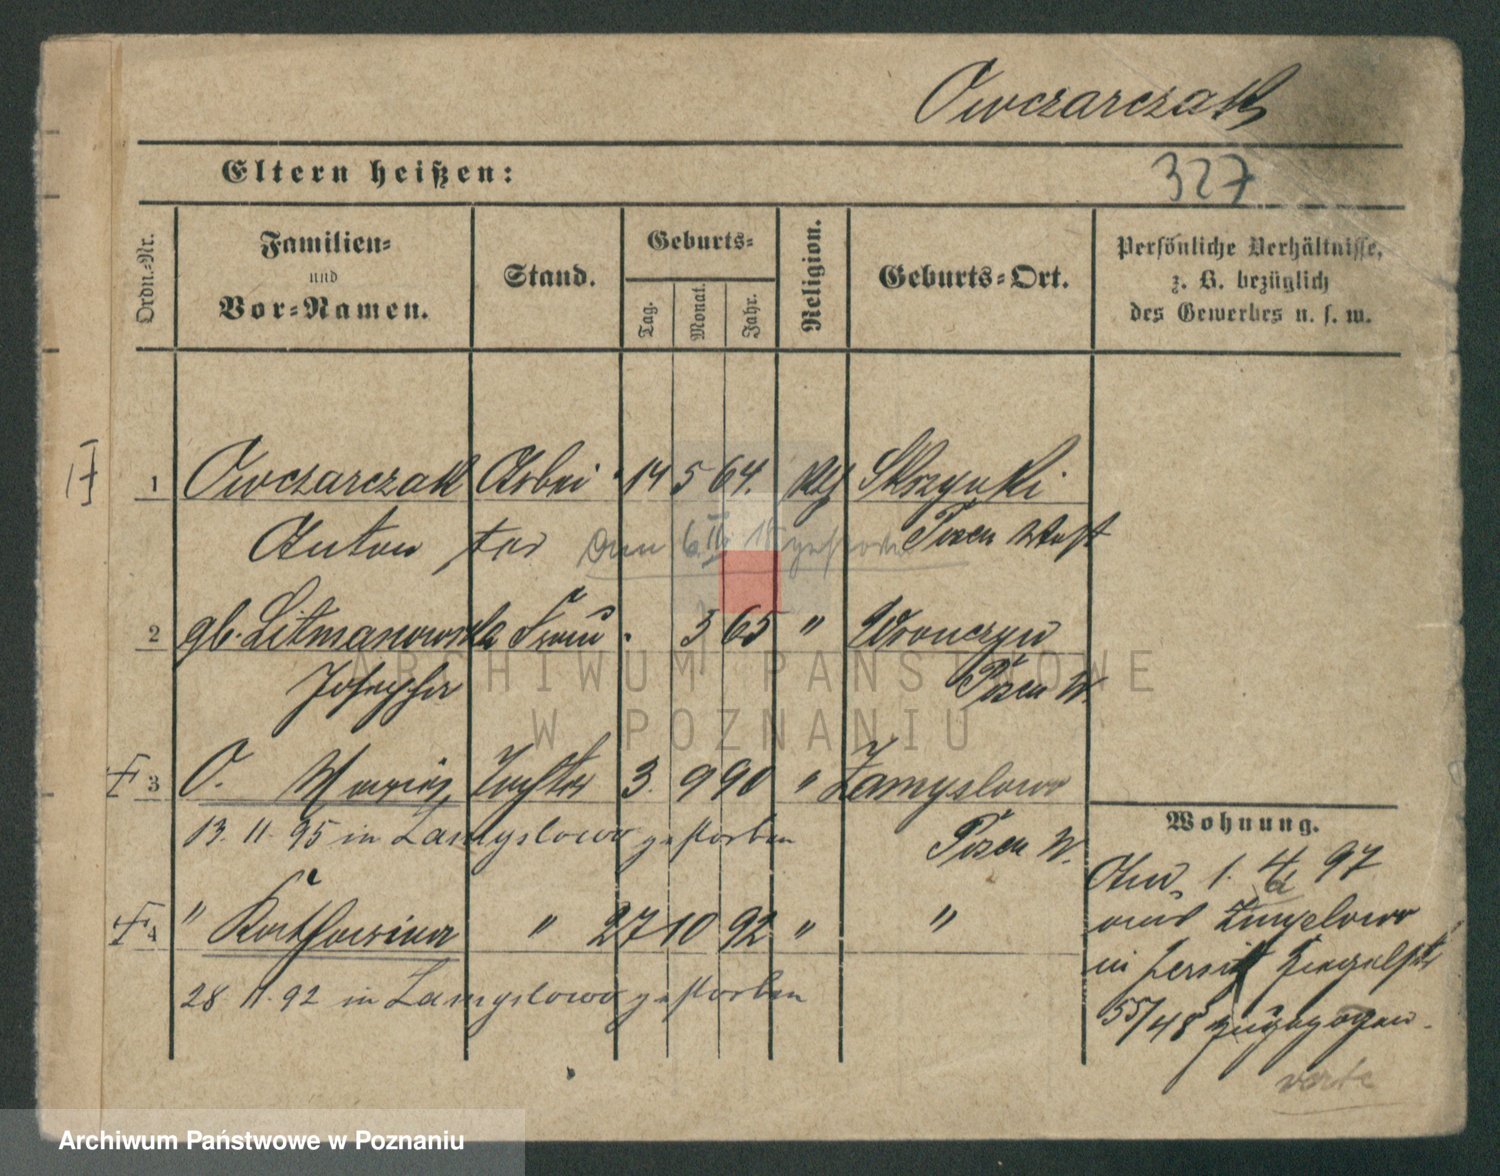 Owczarczak
Eltern heißen:
327
Ordn.-Nr.
Familien-
und
Vor-Namen.
Stand.
Geburts-
Tag.
Monat.
Jahr.
Religion.
Geburts-Ort.
Persönliche Verhältnisse,
z. B. bezüglich
des Gewerbes u. s. w.
1 Owczarczak Arbei 14 5 64. Skrzynki
Anton ter Posen West
gestorben
2 gb. Litmanowska Frau 3 65 " Wronczyn
Josepha Posen W.
3 O. Maria Tochter 3. 9 90 " Zamyslowo
13. 11. 95 in Zamyslowo gestorben
Posen W.
4 " Katharina " 27 10 92 " "
28. 11. 92 in Zamyslowo gestorben
Wohnung.
Am 1. 4. 97
aus Zamyslowo
in Jersitz
55/48 zugezogen.
verte
ARCHIWUM PAŃSTWOWE
W POZNANIU
Archiwum Państwowe w Poznaniu